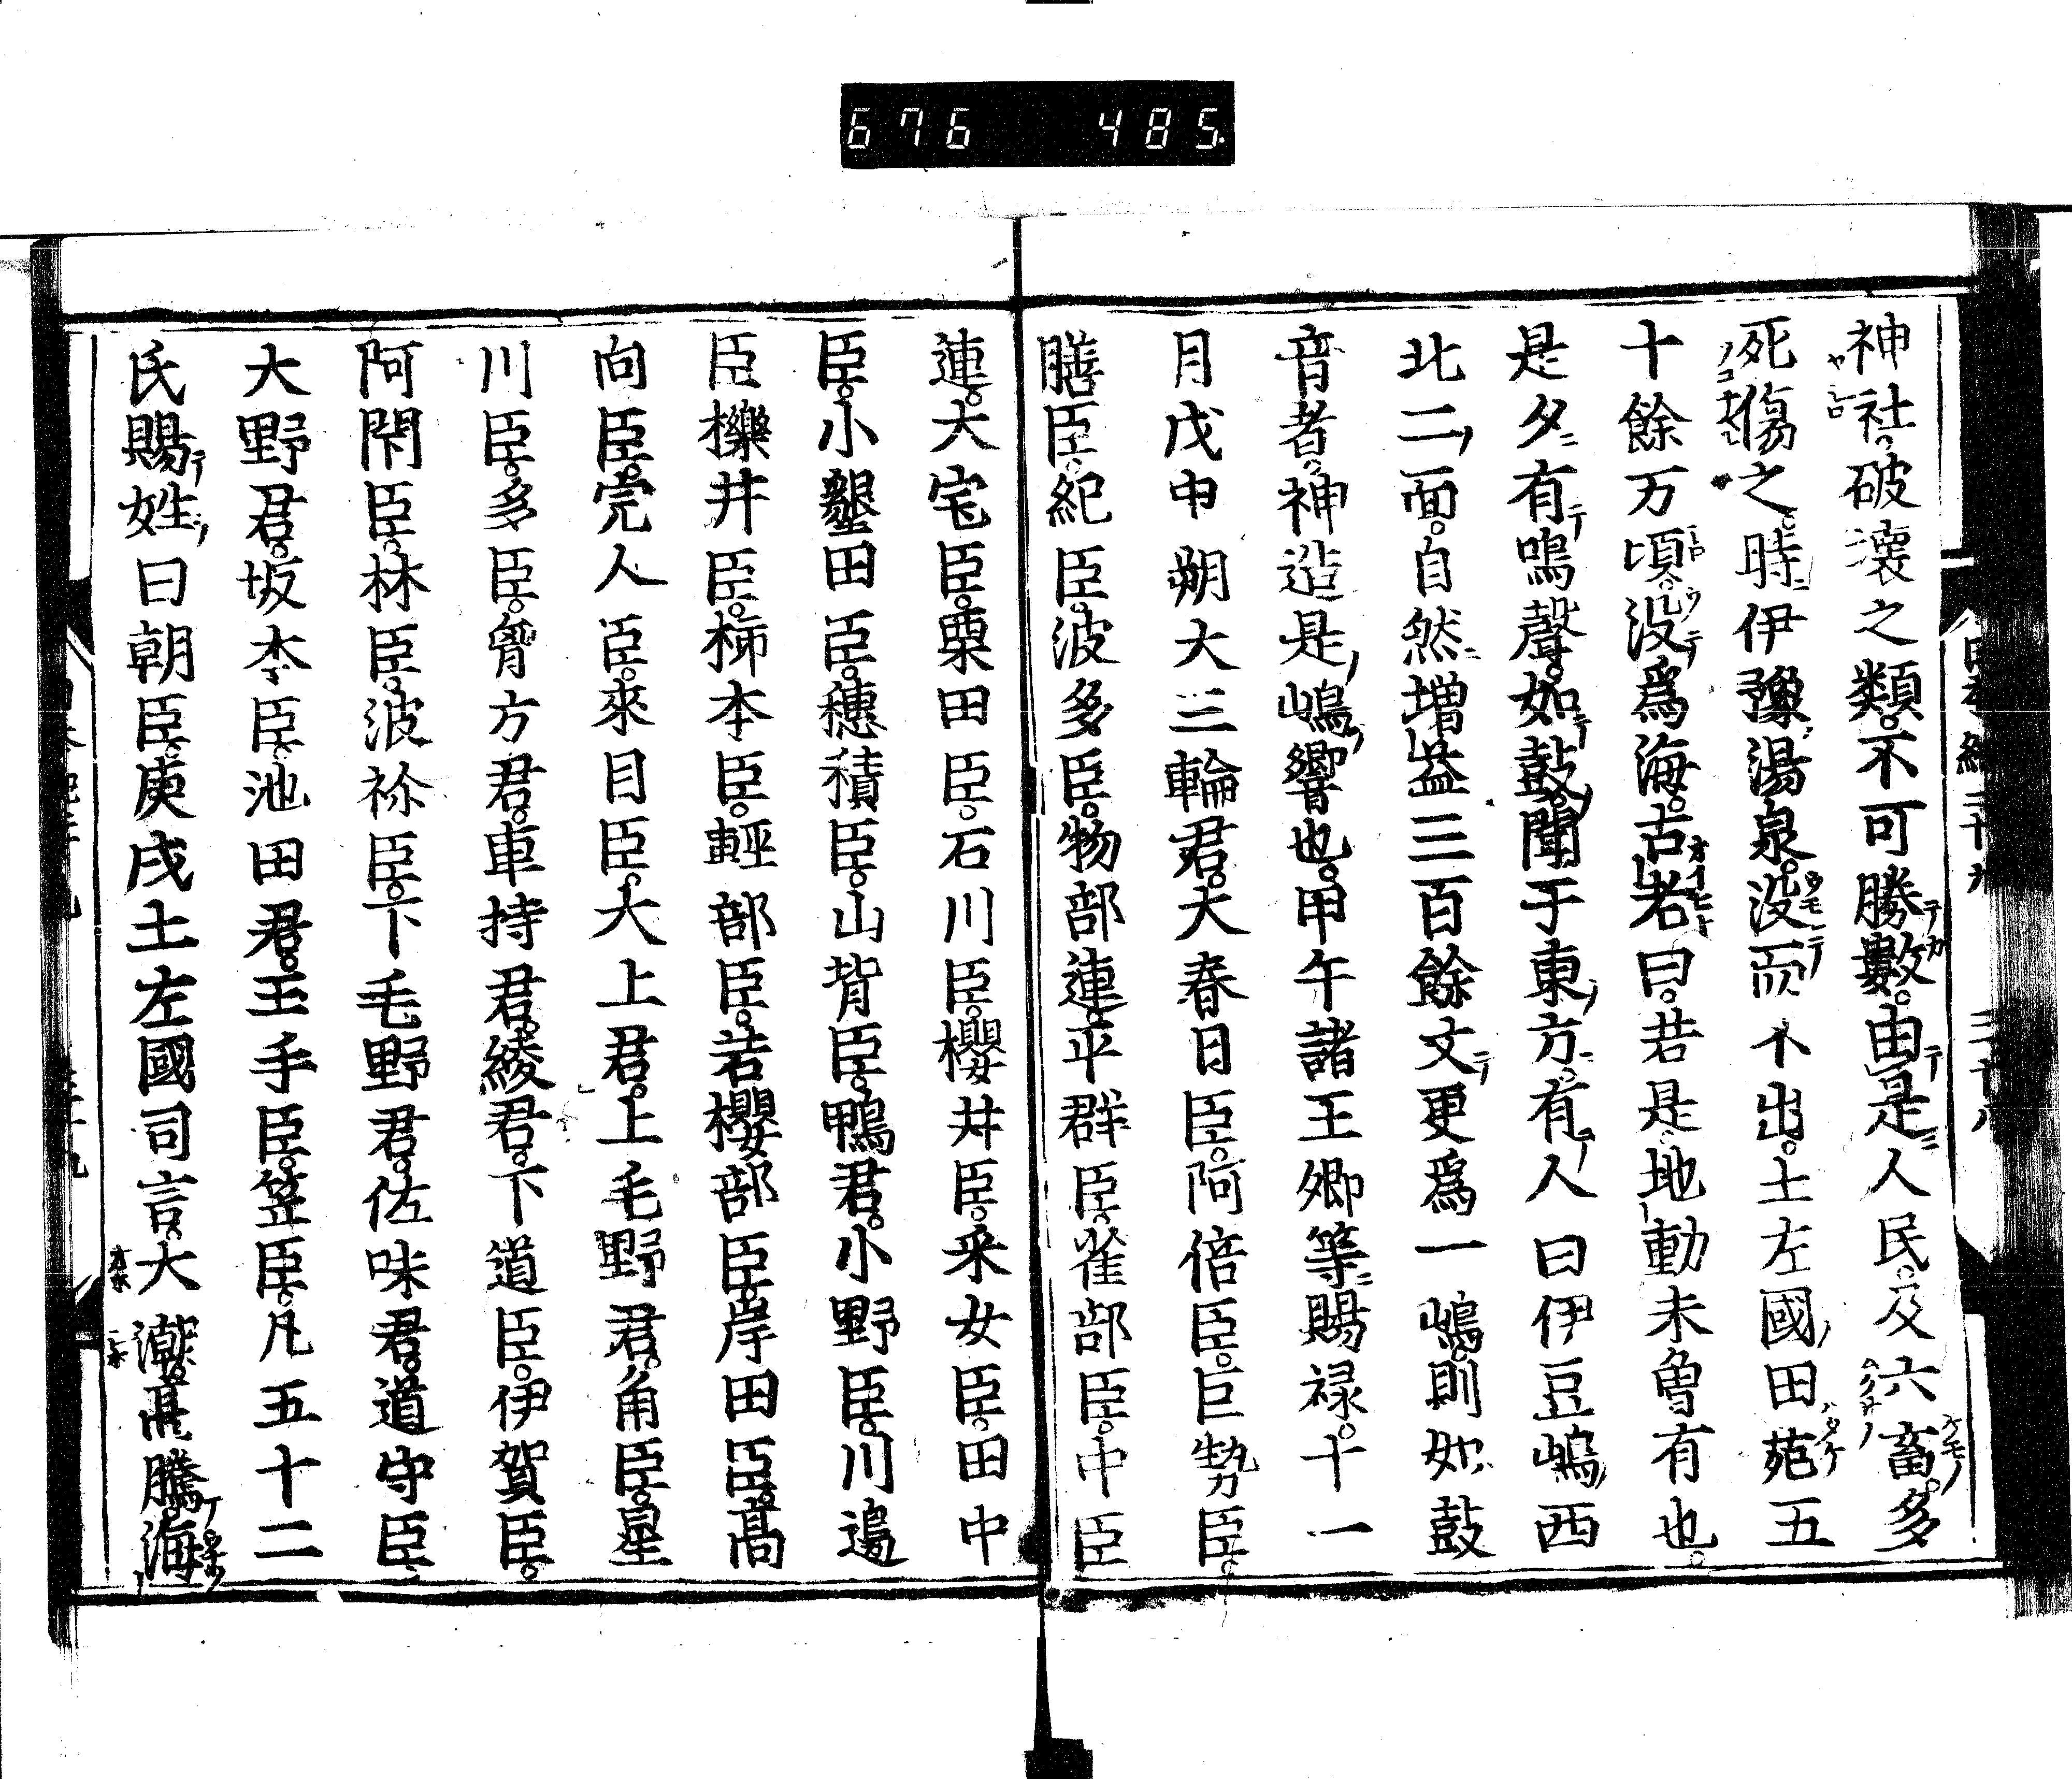 676 485
神社破壞之類。不可勝數。由是人民及六畜多
死傷之。時伊豫湯泉。没而不出。土左國田苑五
十餘万頃。没爲海。古老曰。若是地動未曾有也。
是夕有鳴聲。如鼓。聞于東方。有人曰伊豆嶋西
北二面。自然増益三百餘丈更爲一嶋。則如鼓
音者。神造是嶋響也。甲午諸王卿等賜禄。十一
月戊申朔大三輪君。大春日臣。阿倍臣。巨勢臣。
膳臣。紀臣。波多臣。物部連。平群臣。雀部臣。中臣
連。大宅臣。粟田臣。石川臣。櫻井臣。釆女臣。田中
臣。小墾田臣。穗積臣。山背臣。鴨君。小野臣。川邊
臣櫟井臣。柿本臣。輕部臣。若櫻部臣。岸田臣。高
向臣。完人臣。來目臣。大上君。上毛野君。角臣。星
川臣。多臣。胷方君。車持君。綾君。下道臣。伊賀臣。
阿閇臣。林臣。波祢臣。下毛野君。佐味君。道守臣。
大野君。坂本臣。池田君。玉手臣。笠臣。凡五十二
氏賜姓曰朝臣。庚戌土左國司言。大潮。高騰。海